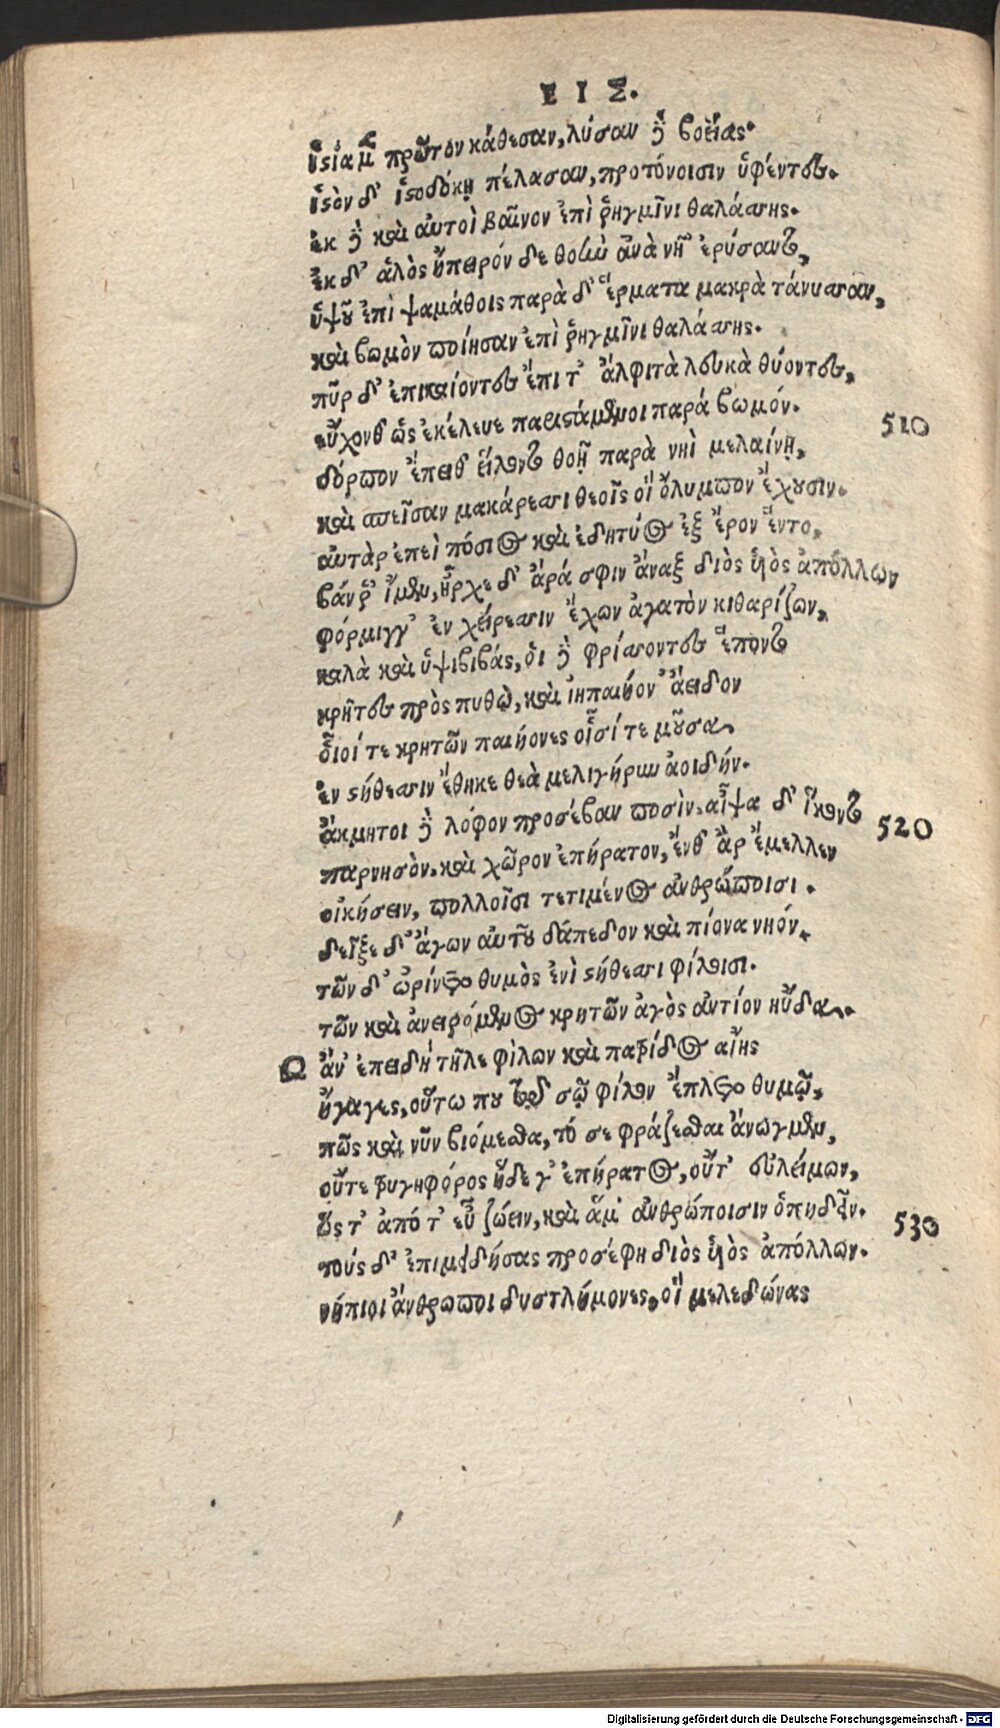 ΕΙΣ.
ἱστία μὲν πρῶτον κάθεσαν, λῦσαν δὲ βοείας.
ἱστὸν δ' ἱστοδόκῃ πέλασαν, προτόνοισιν ὑφέντες.
ἐκ δὲ καὶ αὐτοὶ βαῖνον ἐπὶ ῥηγμῖνι θαλάσσης.
ἐκ δ' ἁλὸς ἤπειρόν δε θοὴν ἀνὰ νῆ' ἐρύσαντο,
ὑψοῦ ἐπὶ ψαμάθοις παρὰ δ' ἕρματα μακρὰ τάνυσσαν,
καὶ βωμὸν ποίησαν ἐπὶ ῥηγμῖνι θαλάσσης.
πῦρ δ' ἐπικαίοντες ἔπι τ' ἄλφιτὰ λευκὰ θύοντες,
εὔχονθ' ὡς ἐκέλευε παριστάμενοι παρά βωμόν. 510
δόρπον ἔπειθ' εἵλοντο θοῇ παρὰ νηὶ μελαίνῃ,
καὶ σπεῖσαν μακάρεσσι θεοῖς οἳ ὄλυμπον ἔχουσιν.
αὐτὰρ ἐπεὶ πόσιος καὶ ἐδητύος ἐξ ἔρον ἕντο,
βάν ῥ' ἴμεν, ἦρχε δ' ἄρά σφιν ἄναξ διὸς υἱὸς ἀπόλλων
φόρμιγγ' ἐν χείρεσσιν ἔχων ἀγατὸν κιθαρίζων,
καλὰ καὶ ὕψι βιβάς, οἱ δὲ φρίσσοντες ἕποντο
κρῆτες πρὸς πυθὼ, καὶ ἰηπαιήον' ἄειδον
οἷοί τε κρητῶν παιήονες οἷσί τε μοῦσα
ἐν στήθεσσιν ἔθηκε θεὰ μελιγήρυν ἀοιδήν.
ἄκμητοι δὲ λόφον προσέβαν ποσὶν. αἶψα δ' ἵκοντο 520
παρνησὸν. καὶ χῶρον ἐπήρατον, ἔνθ' ἂρ ἔμελλεν
οἰκήσειν, πολλοῖσι τετιμένος ἀνθρώποισι.
δεῖξε δ' ἄγων αὐτοῦ δάπεδον καὶ πίονα νηόν.
τῶν δ' ὠρίνετο θυμὸς ἐνὶ στήθεσσι φίλοισι.
τῶν καὶ ἀνειρόμενος κρητῶν ἀγὸς ἀντίον ηὔδα.
Ω ἄν' ἐπειδὴ τῆλε φίλων καὶ πατρίδος αἴης
ἤγαγες, οὕτω που τῷ σῷ φίλον ἔπλετο θυμῷ,
πῶς καὶ νῦν βιόμεσθα, τό σε φράζεσθαι ἄνωγμεν,
οὔτε τρυγηφόρος ἥδε γ' ἐπήρατος, οὔτ' εὐλείμων,
ὥς τ' ἀπό τ' εὖ ζώειν, καὶ ἅμ' ἀνθρώποισιν ὀπηδεῖν. 530
τοὺς δ' ἐπιμειδήσας προσέφη διὸς υἱὸς ἀπόλλων.
νήπιοι ἄνθρωποι δυστλήμονες, οἳ μελεδώνας
Digitalisierung gefördert durch die Deutsche Forschungsgemeinschaft - DFG